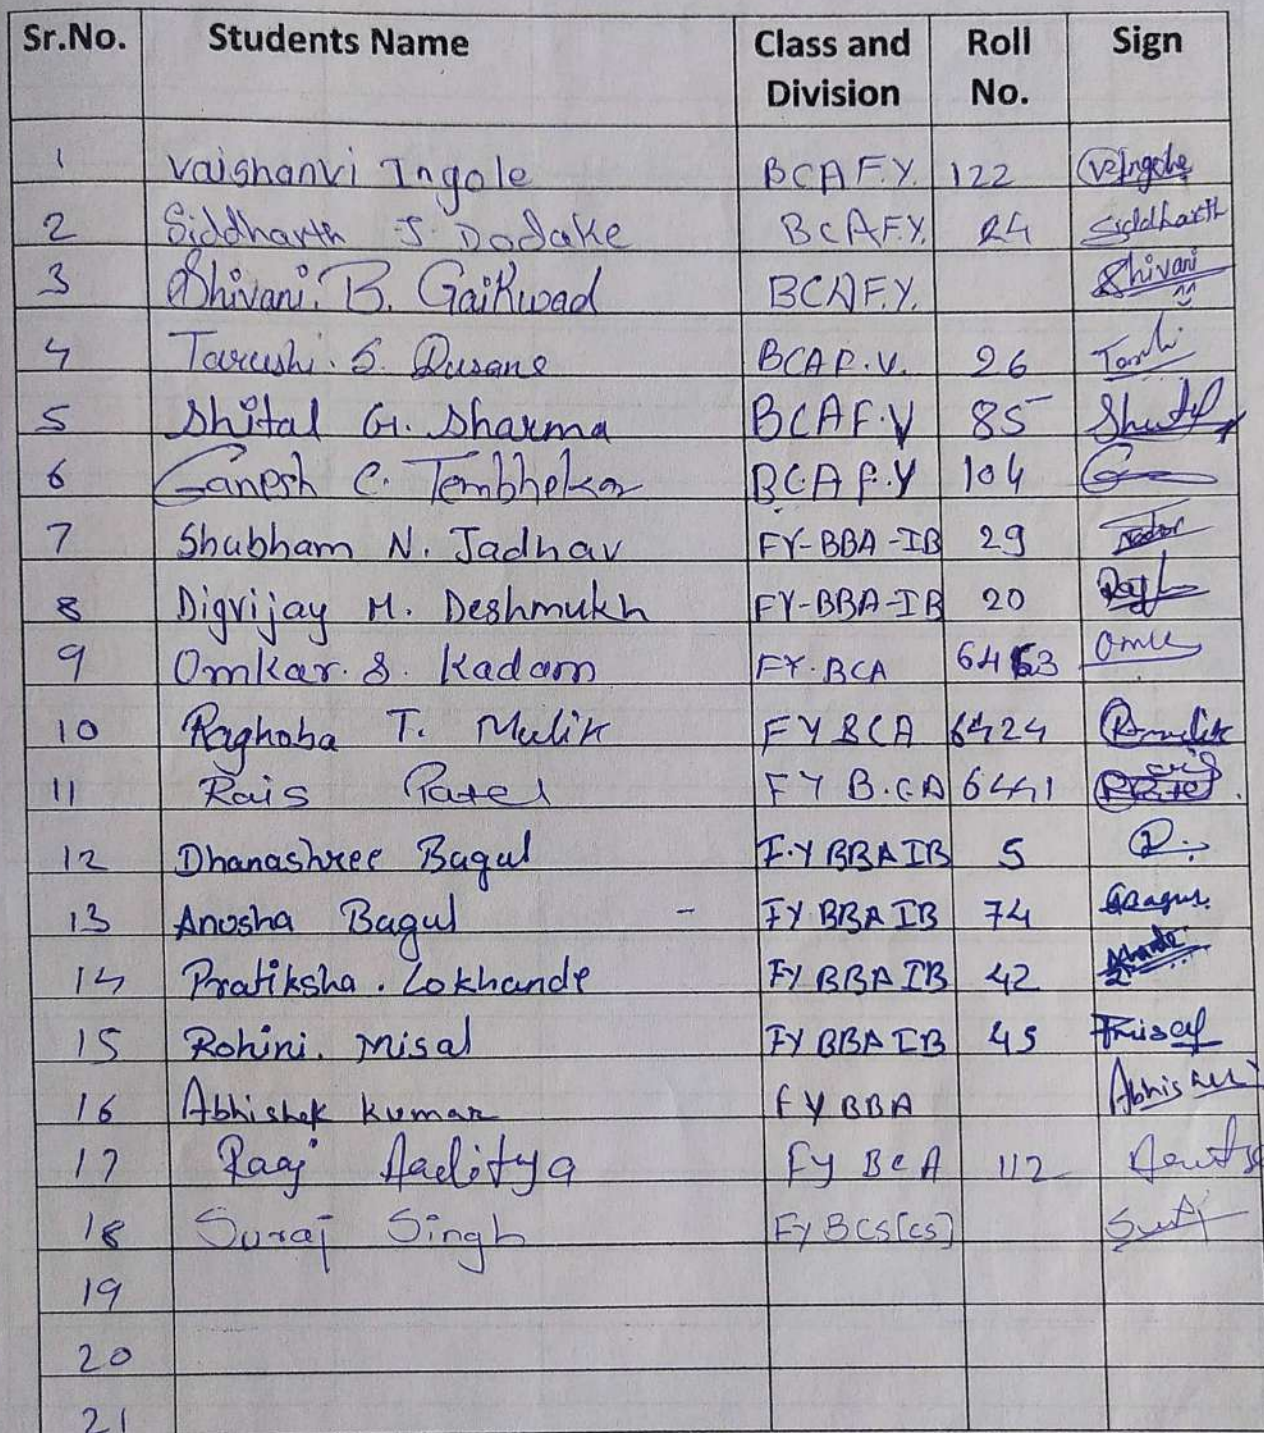 Sr.No. Students Name Class and Division Roll No. Sign
1 Vaishanvi Ingole BCA F.Y. 122 VRIngole
2 Siddharth J. Dodake BCAF.Y. 24 Siddharth
3 Shivani. B. Gaikwad BCAF.Y. Shivani
4 Tarushi. S. Dusane BCAF.Y. 26
5 Shital G. Sharma BCAF.Y 85
6 Ganesh C. Tembhekar BCAF.Y 104
7 Shubham N. Jadhav FY-BBA-IB 29
8 Digvijay M. Deshmukh FY-BBA-IB 20
9 Omkar. S. Kadam FY.BCA 6463
10 Raghoba T. Mulik FYBCA 6424 Rmulik
11 Rais Patel FY B.CA 6441
12 Dhanashree Bagul F.Y BBA IB 5 D.
13 Anusha Bagul - FY BBA IB 74
14 Pratiksha. Lokhande FY BBA IB 42
15 Rohini. Misal FY BBA IB 45
16 Abhishek Kumar FY BBA
17 Raaj Aaditya Fy BCA 112
18 Suraj Singh Fy BCS[CS]
19
20
21